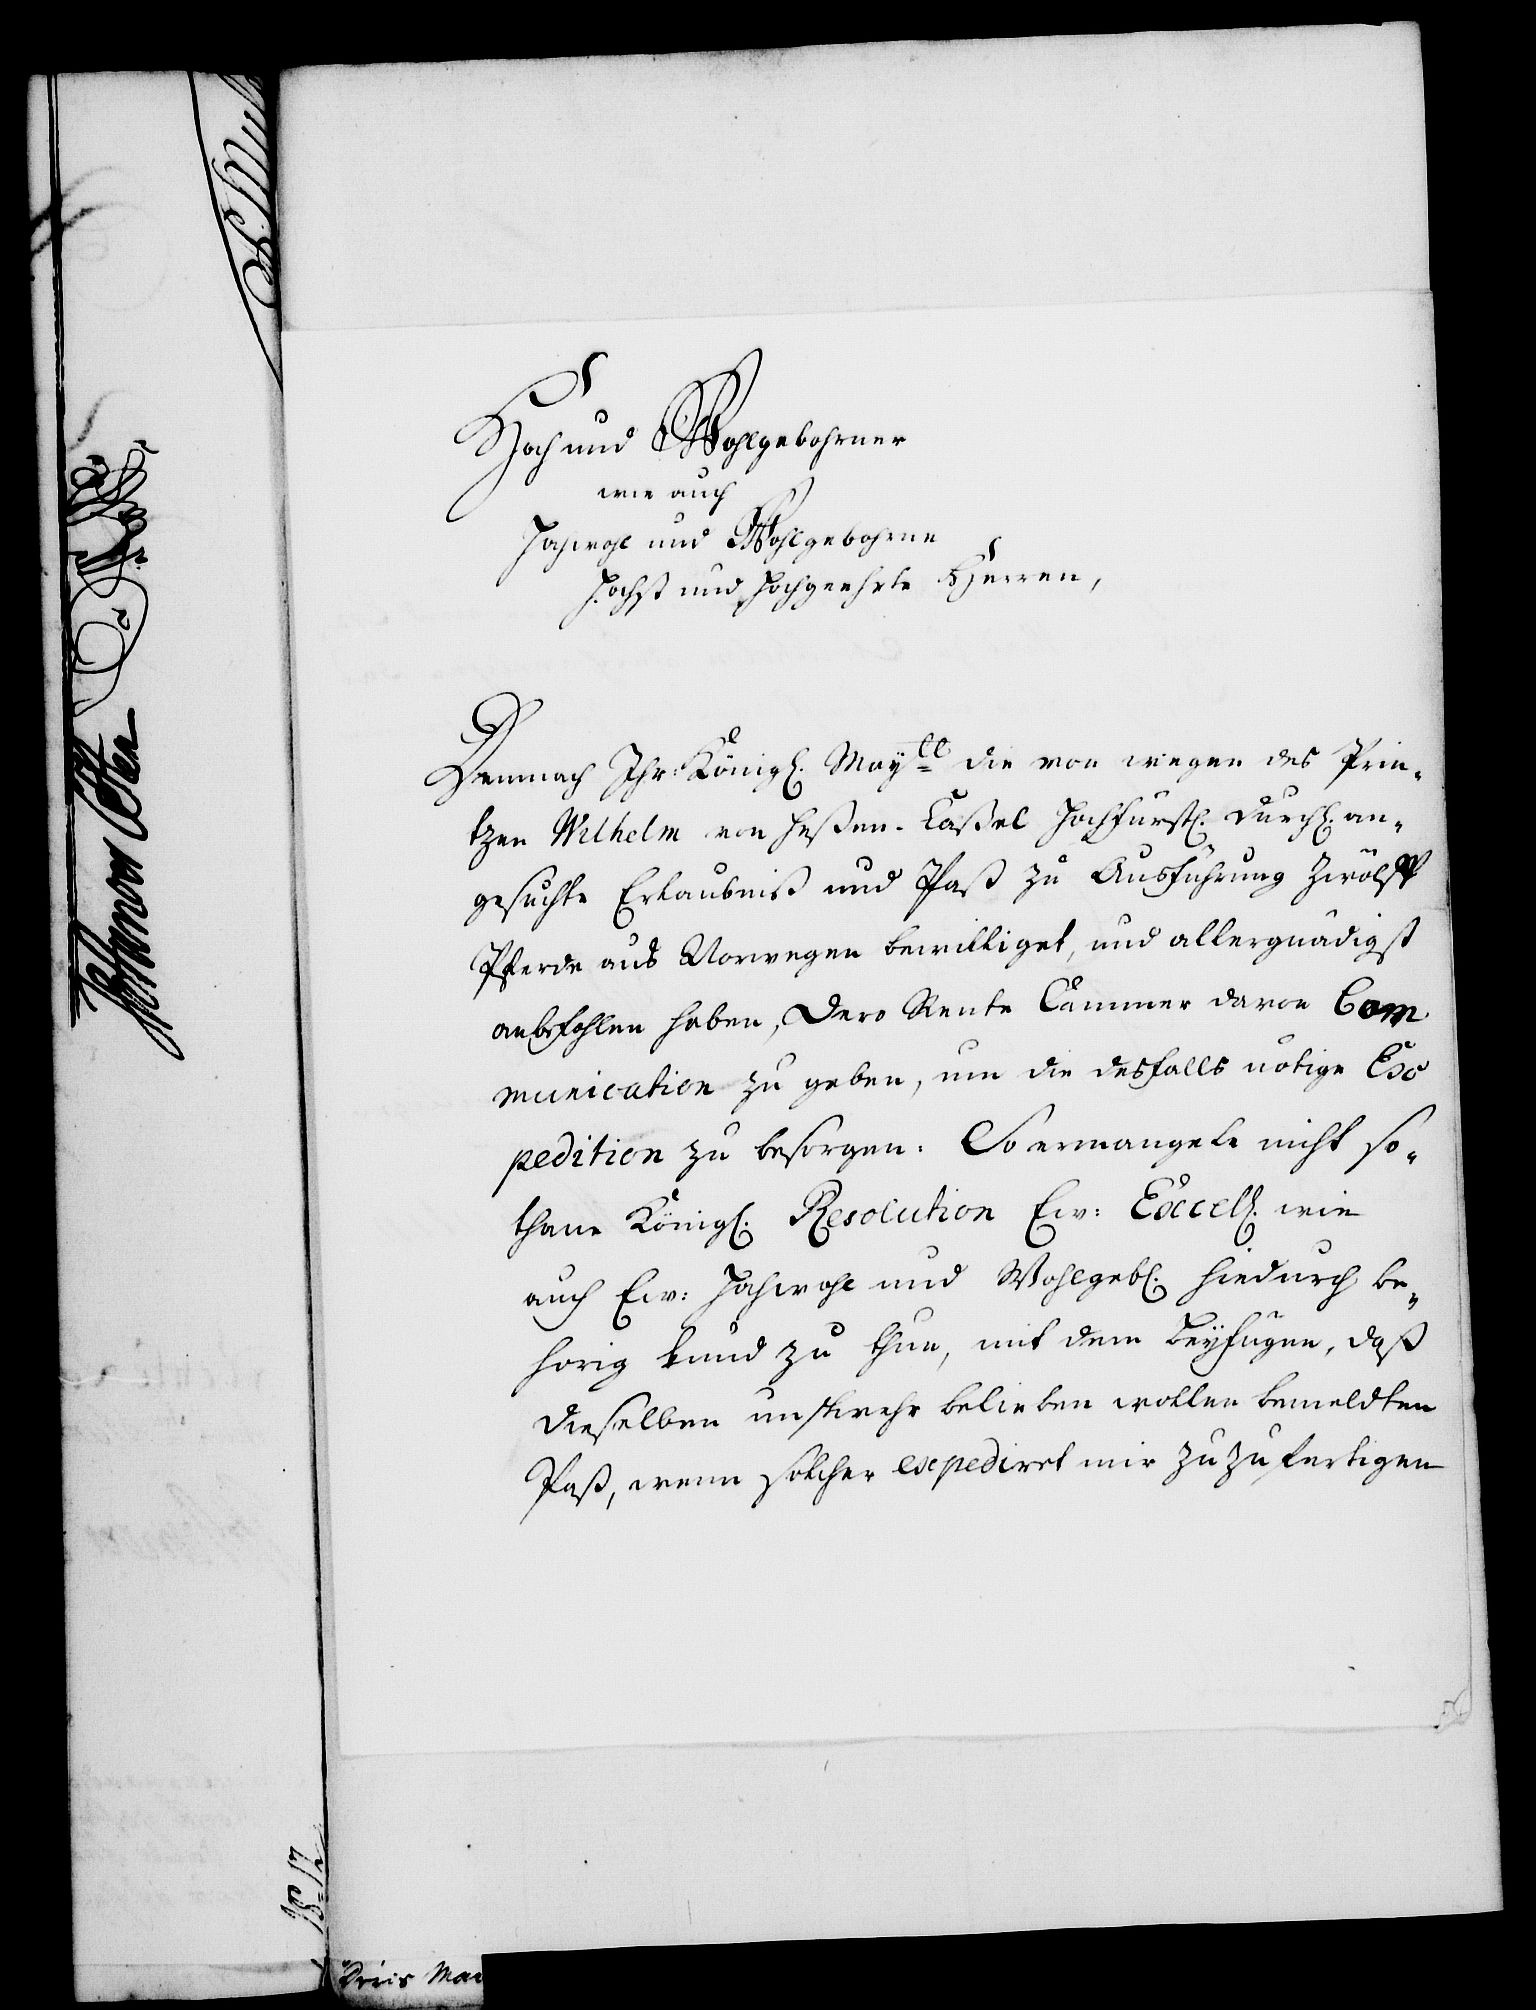 Hoch und Wohlgebohrner
wie auch
Hochwohl und Wohlgebohrne
Höchst und Hochgeehrte Herren,
Demnach Ihr: Königl. Maytt die von wegen des Prin-
tzen Wilhelm von Heßen-Caßel Hochfürstl. Durchl. an-
gesuchte Erlaubniß und Paß zu Ausführung Zwölff
Pferde aus Norwegen bewilliget, und allergnädigst
anbefohlen haben, Dero Rente Cammer davon Com
munication zu geben, um die desfalls nötige Ex
pedition zu besorgen: So ermangele nicht so-
thane Königl. Resolution Ew: Excell. wie
auch Ew: Hochwohl und Wohlgebl. hiedurch be-
hörig kund zu thun, mit dem Beyfügen, daß
dieselben unschwehr belieben wollen bemeldten
Paß, wenn solcher expediret mir zuzufertigen